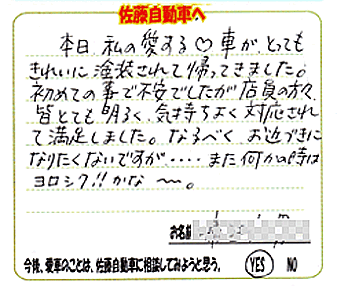 佐藤自動車へ
本日、私の愛する♡車が、とっても
きれいに塗装されて帰ってきました。
初めての事で不安でしたが店員の方々、
皆とても明るく、気持ちよく対応され
て満足しました。なるべくお近づきに
なりたくないですが・・・・また何かの時は
ヨロシク!!かな〜。
お名前
今後、愛車のことは、佐藤自動車に相談してみようと思う。 YES NO